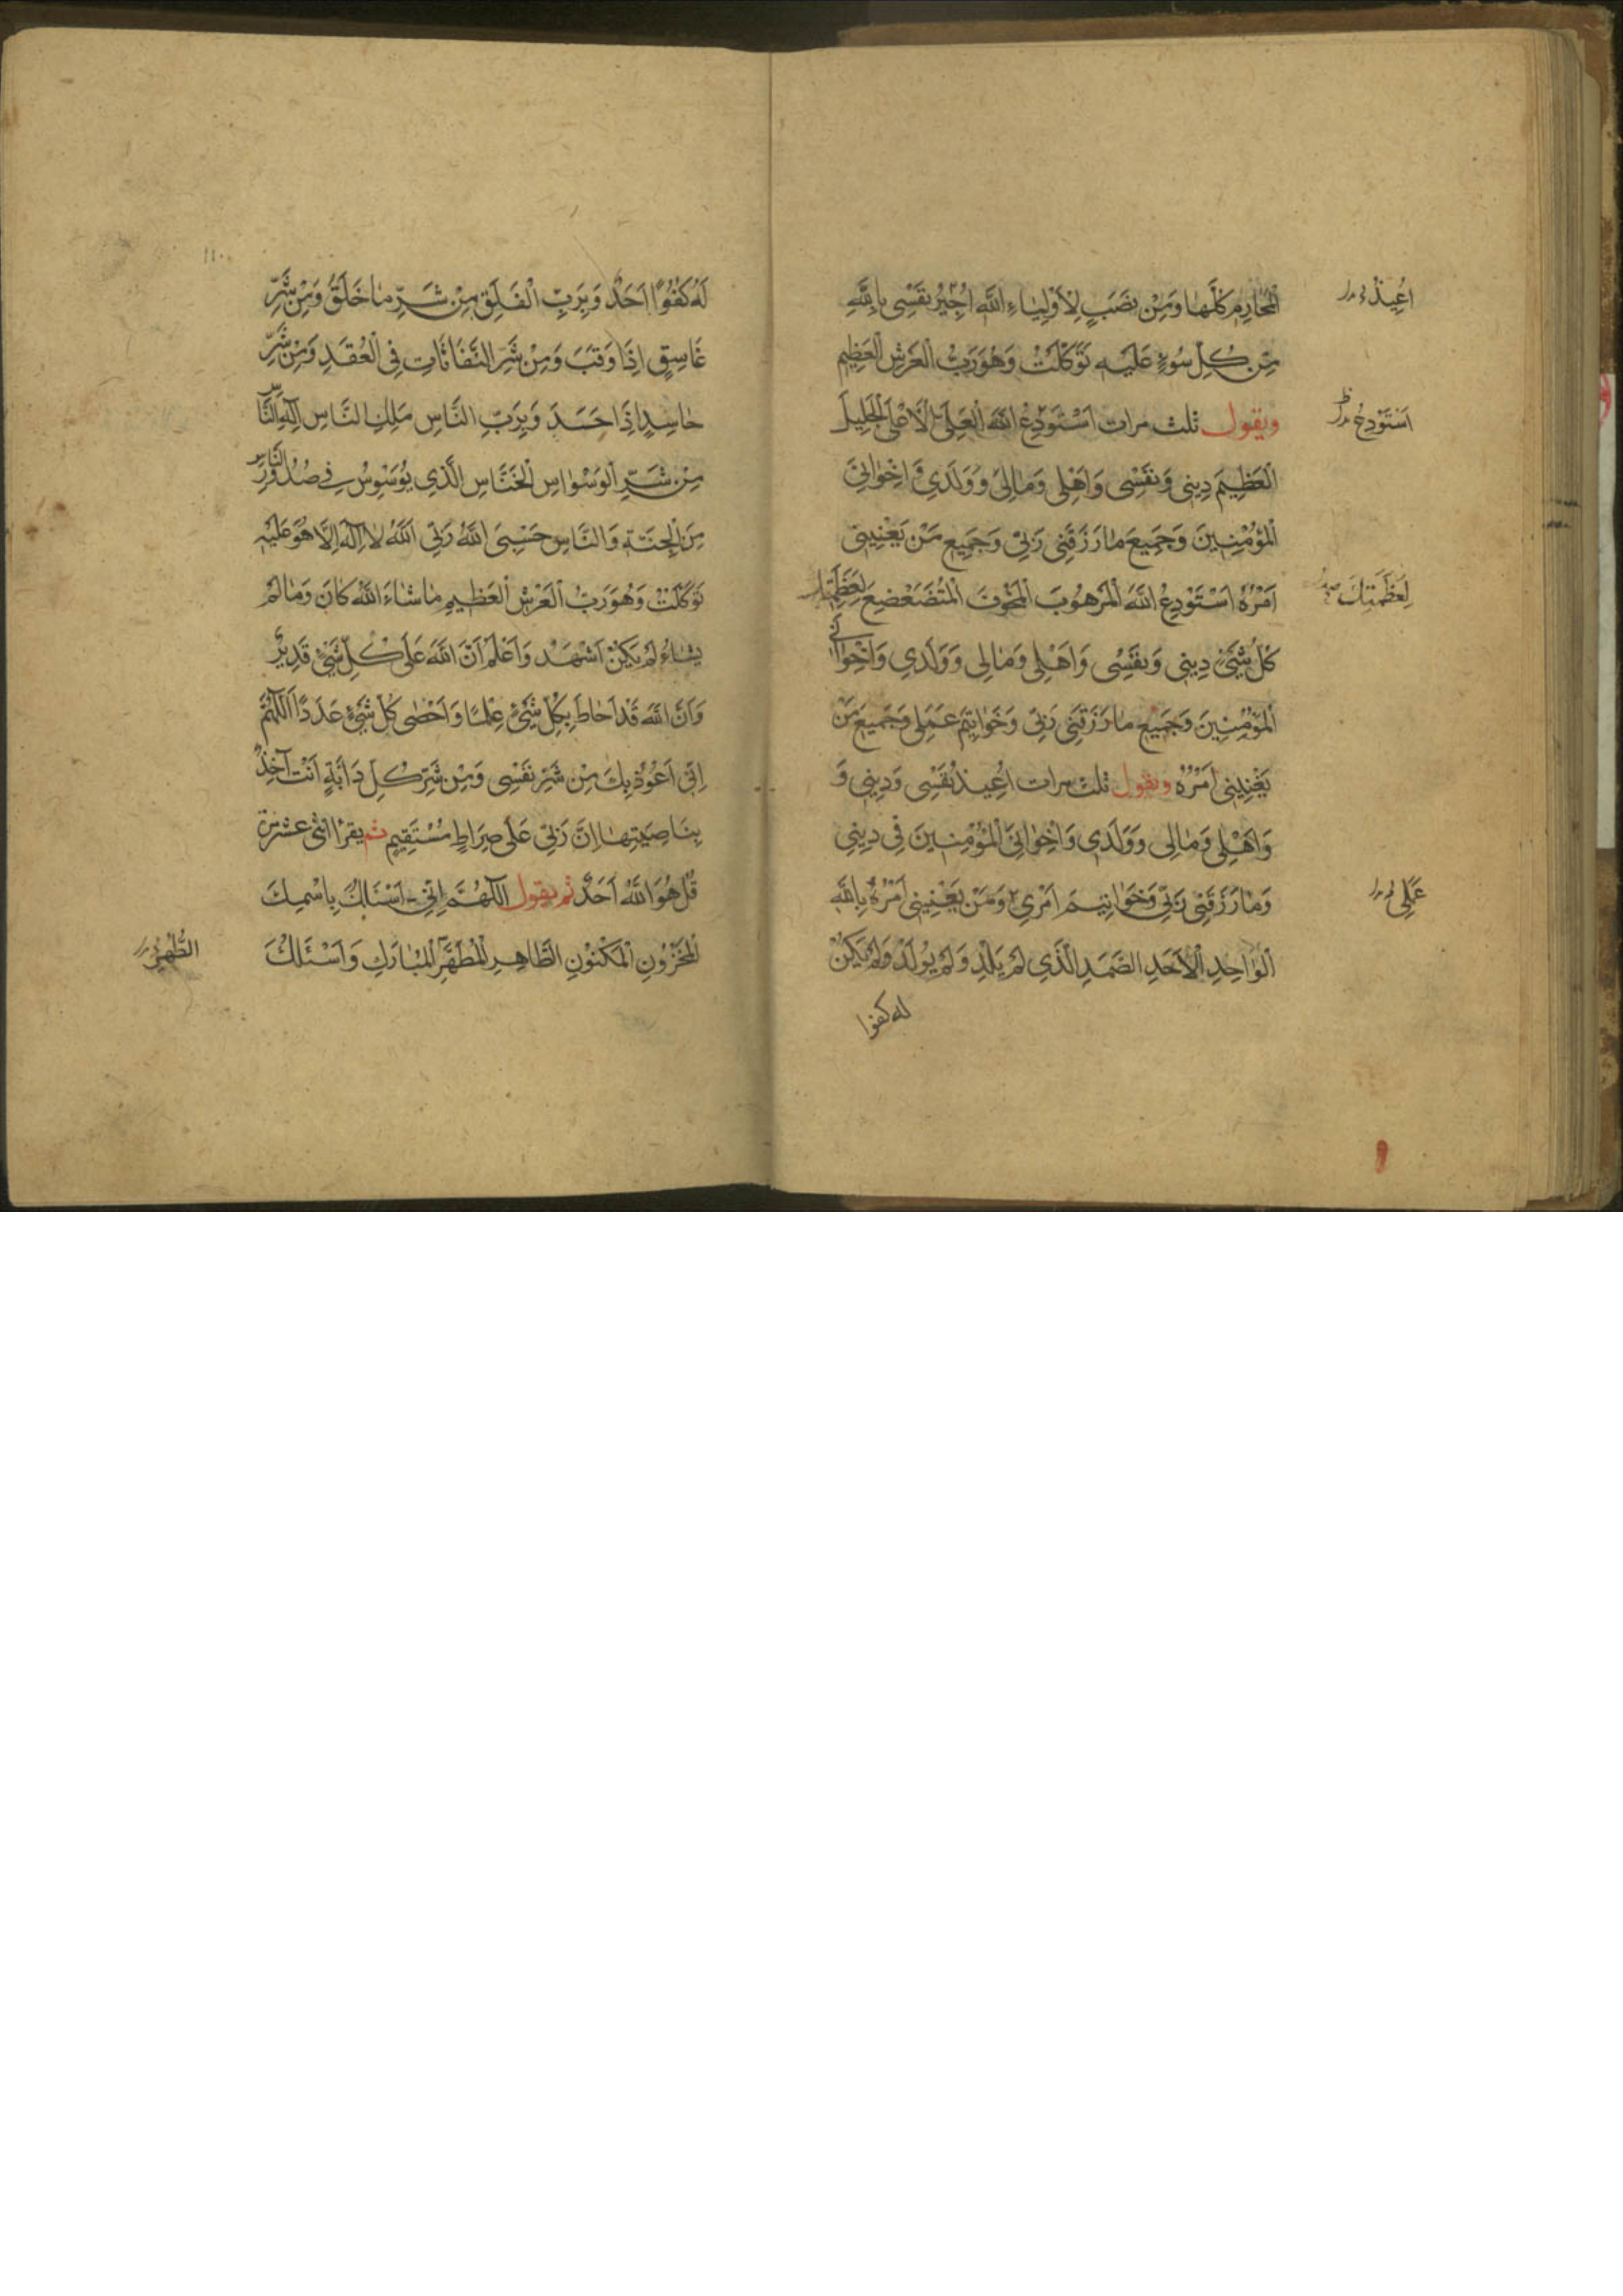 الْمَحَارِمِ كُلِّهَا وَمِنْ نَصَبٍ لِأَوْلِيَاءِ اللَّهِ اُجِيرُ نَفْسِى بِاللَّهِ
اُعِيذُ
مِنْ كُلِّ سُوءٍ عَلَيْهِ تَوَكَّلْتُ وَهُوَ رَبُّ الْعَرْشِ الْعَظِيمِ
ويقول ثلث مرات اَسْتَوْدِعُ اللَّهَ الْعَلِىَّ الْاَعْلَى الْجَلِيلَ
اَسْتَوْدِعُ
الْعَظِيمَ دِينِى وَنَفْسِى وَاَهْلِى وَمَالِى وَوَلَدِى وَاِخْوَانِىَ
الْمُؤْمِنِينَ وَجَمِيعَ مَا رَزَقَنِى رَبِّى وَجَمِيعَ مَنْ يَعْنِينِى
اَمْرُهُ اَسْتَوْدِعُ اللَّهَ الْمَرْهُوبَ الْمَخُوفَ الْمُتَضَعْضِعَ لِعَظَمَتِهِ
لِعَظَمَتِكَ
كُلُّ شَىْءٍ دِينِى وَنَفْسِى وَاَهْلِى وَمَالِى وَوَلَدِى وَاِخْوَانِى
الْمُؤْمِنِينَ وَجَمِيعَ مَا رَزَقَنِى رَبِّى وَخَوَاتِيمَ عَمَلِى وَجَمِيعَ مَنْ
يَعْنِينِى اَمْرُهُ ويقول ثلث مرات اُعِيذُ نَفْسِى وَدِينِى وَ
وَاَهْلِى وَمَالِى وَوَلَدِى وَاِخْوَانِىَ الْمُؤْمِنِينَ فِى دِينِى
وَمَا رَزَقَنِى رَبِّى وَخَوَاتِيمَ اَمْرِى وَمَنْ يَعْنِينِى اَمْرُهُ بِاللَّهِ
عَمَلِى
الْوَاحِدِ الْاَحَدِ الصَّمَدِ الَّذِى لَمْ يَلِدْ وَلَمْ يُولَدْ وَلَمْ يَكُنْ
له كفوا
١١٠
لَهُ كُفُوًا اَحَدٌ وَبِرَبِّ الْفَلَقِ مِنْ شَرِّ مَا خَلَقَ وَمِنْ شَرِّ
غَاسِقٍ اِذَا وَقَبَ وَمِنْ شَرِّ النَّفَّاثَاتِ فِى الْعُقَدِ وَمِنْ شَرِّ
حَاسِدٍ اِذَا حَسَدَ وَبِرَبِّ النَّاسِ مَلِكِ النَّاسِ اِلٰهِ النَّاسِ
مِنْ شَرِّ الْوَسْوَاسِ الْخَنَّاسِ الَّذِى يُوَسْوِسُ فِى صُدُورِ النَّاسِ
مِنَ الْجِنَّةِ وَالنَّاسِ حَسْبِىَ اللَّهُ رَبِّىَ اللَّهُ لَا اِلٰهَ اِلَّا هُوَ عَلَيْهِ
تَوَكَّلْتُ وَهُوَ رَبُّ الْعَرْشِ الْعَظِيمِ مَا شَاءَ اللَّهُ كَانَ وَمَا لَمْ
يَشَاءُ لَمْ يَكُنْ اَشْهَدُ وَاَعْلَمُ اَنَّ اللَّهَ عَلَى كُلِّ شَىْءٍ قَدِيرٌ
وَاَنَّ اللَّهَ قَدْ اَحَاطَ بِكُلِّ شَىْءٍ عِلْمًا وَاَحْصَى كُلَّ شَىْءٍ عَدَدًا اَللّٰهُمَّ
اِنِّى اَعُوذُ بِكَ مِنْ شَرِّ نَفْسِى وَمِنْ شَرِّ كُلِّ دَابَّةٍ اَنْتَ آخِذٌ
بِنَاصِيَتِهَا اِنَّ رَبِّى عَلَى صِرَاطٍ مُسْتَقِيمٍ ثم يقرأ اثنى عشر مرة
قُلْ هُوَ اللَّهُ اَحَدٌ ثم يقول اللّٰهُمَّ اِنِّى اَسْئَلُكَ بِاسْمِكَ
الْمَخْزُونِ الْمَكْنُونِ الطَّاهِرِ الْمُطَهَّرِ الْمُبَارَكِ وَاَسْئَلُكَ
الطُّهْرِ